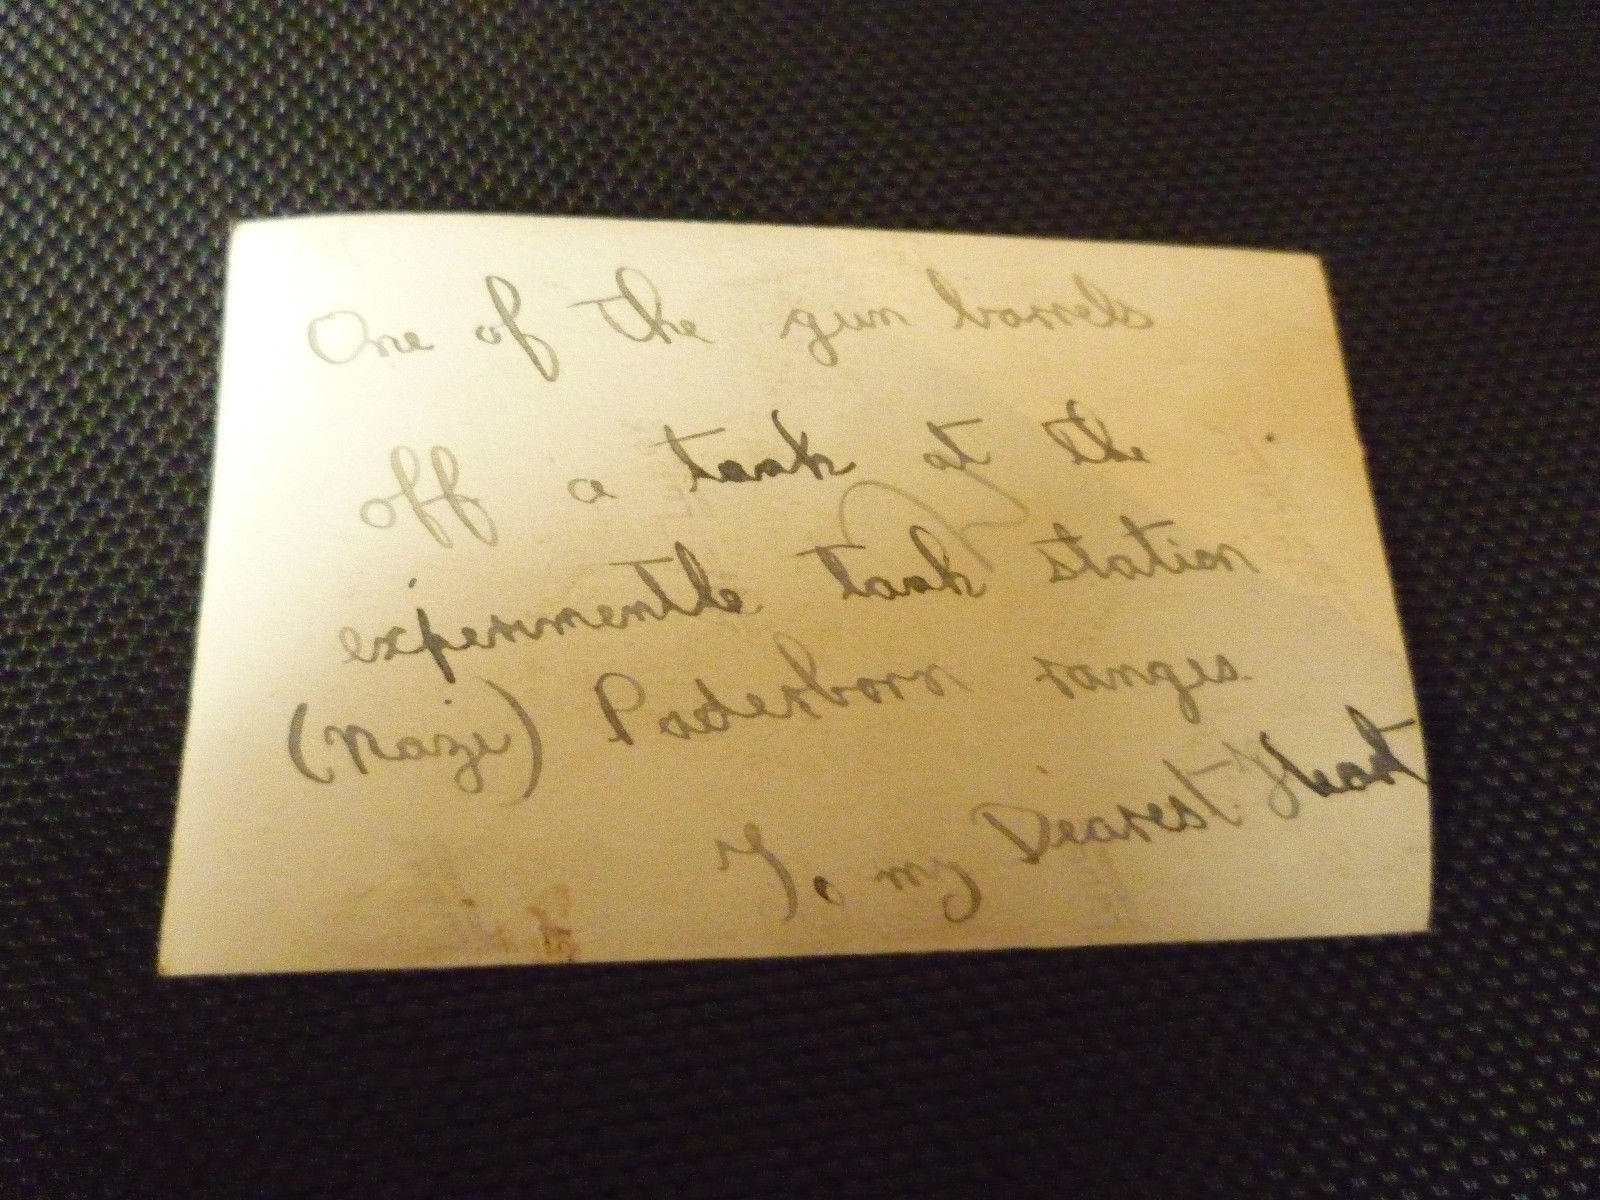 One of the gun barrels
off a tank at the
experimentle tank station
(Naze) Paderborn ranges.
To my Dearest Heart